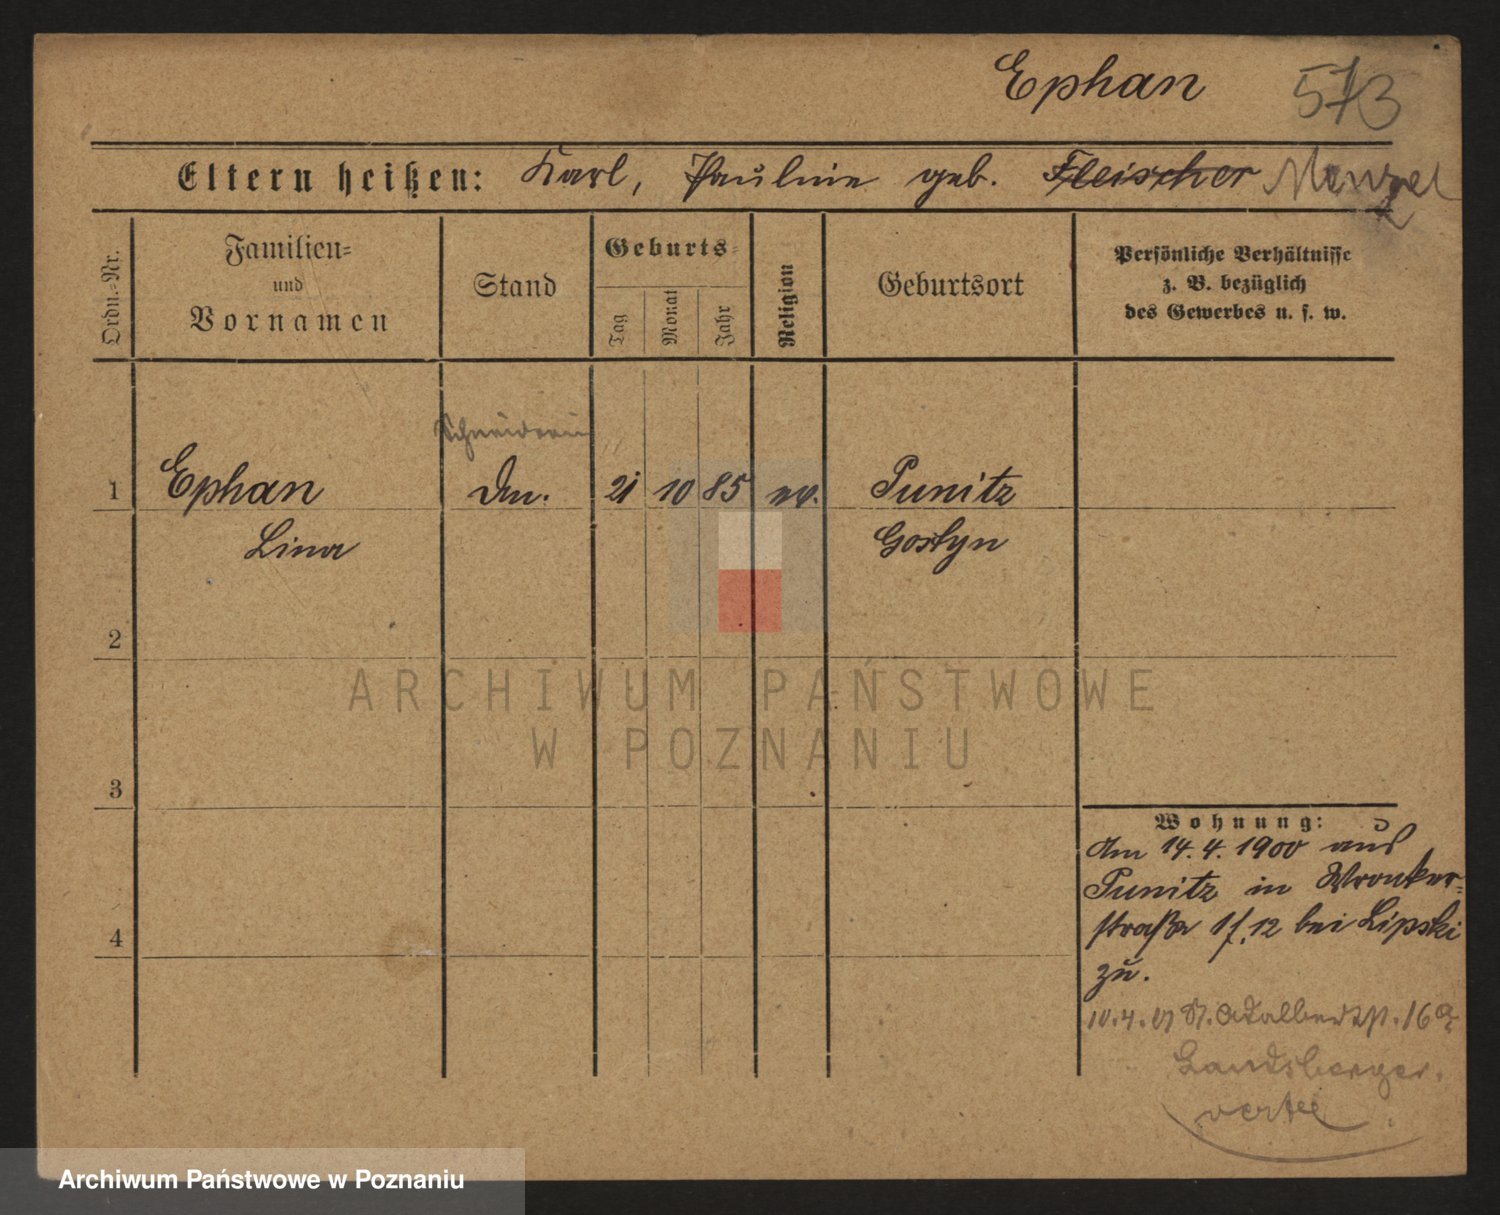 Ephan 573
Eltern heißen: Karl, Pauline geb. Fleischer Menzel
Ordn.-Nr.
Familien-
und
Vornamen
Stand
Geburts-
Tag
Monat
Jahr
Religion
Geburtsort
Persönliche Verhältnisse
z. B. bezüglich
des Gewerbes u. s. w.
Schneiderin
1 Ephan 21 10 85 ev. Punitz
Lina Gostyn
2
3
4
Wohnung:
Am 14.4.1900 aus
Punitz in Wronker-
straße 12 bei Lipski
zu.
10.4.01 St. Adalbertstr. 16a
Landsberger
ARCHIWUM PAŃSTWOWE
W POZNANIU
Archiwum Państwowe w Poznaniu